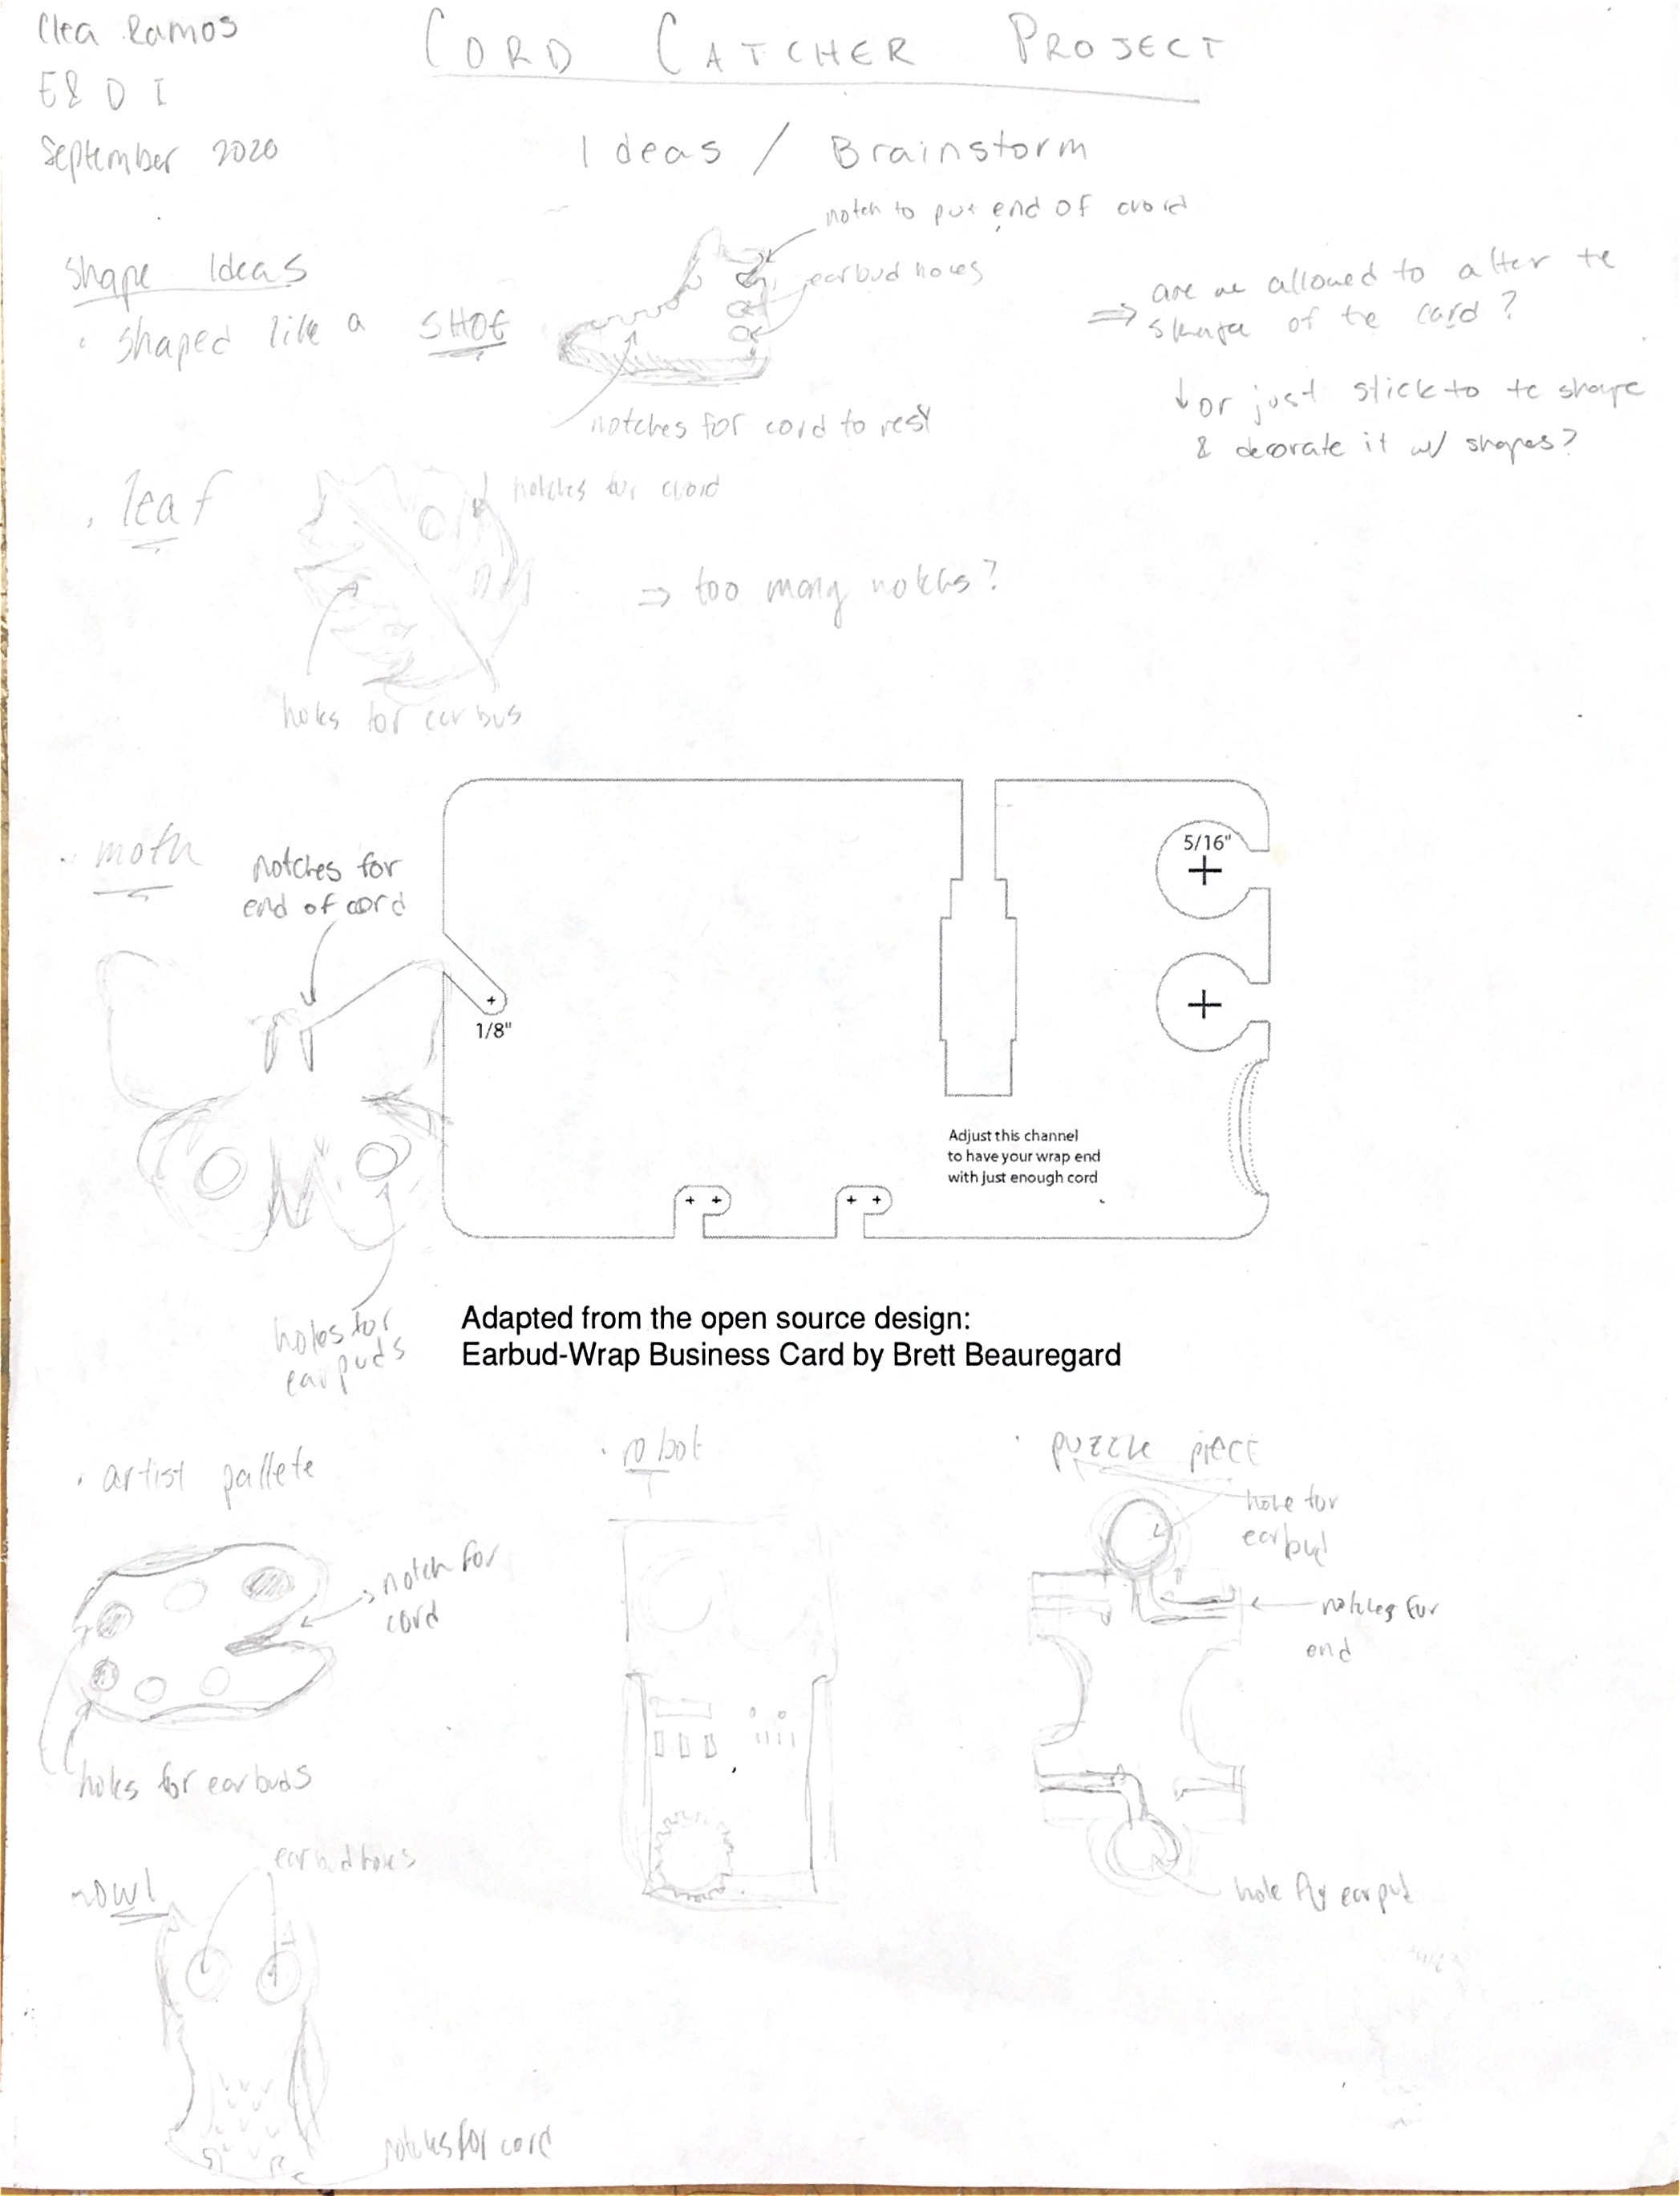 Clea Ramos
E& D I
September 2020
CORD CATCHER PROJECT
Ideas / Brainstorm
Shape Ideas
• shaped like a SHOE
notch to put end of cord
earbud holes
notches for cord to rest
⇒ are we allowed to alter te
shape of te card?
↓ or just stick to te shape
& decorate it w/ shapes?
• leaf
notches for cord
⇒ too many notches?
holes for earbus
• moth
notches for
end of cord
5/16"
1/8"
Adjust this channel
to have your wrap end
with just enough cord
holes for
earpuds
Adapted from the open source design:
Earbud-Wrap Business Card by Brett Beauregard
• artist pallete
notch for
cord
holes for earbuds
• robot
• puzzle piece
hole for
earbud
notches for
end
hole for earput
owl
earbud holes
notches for cord